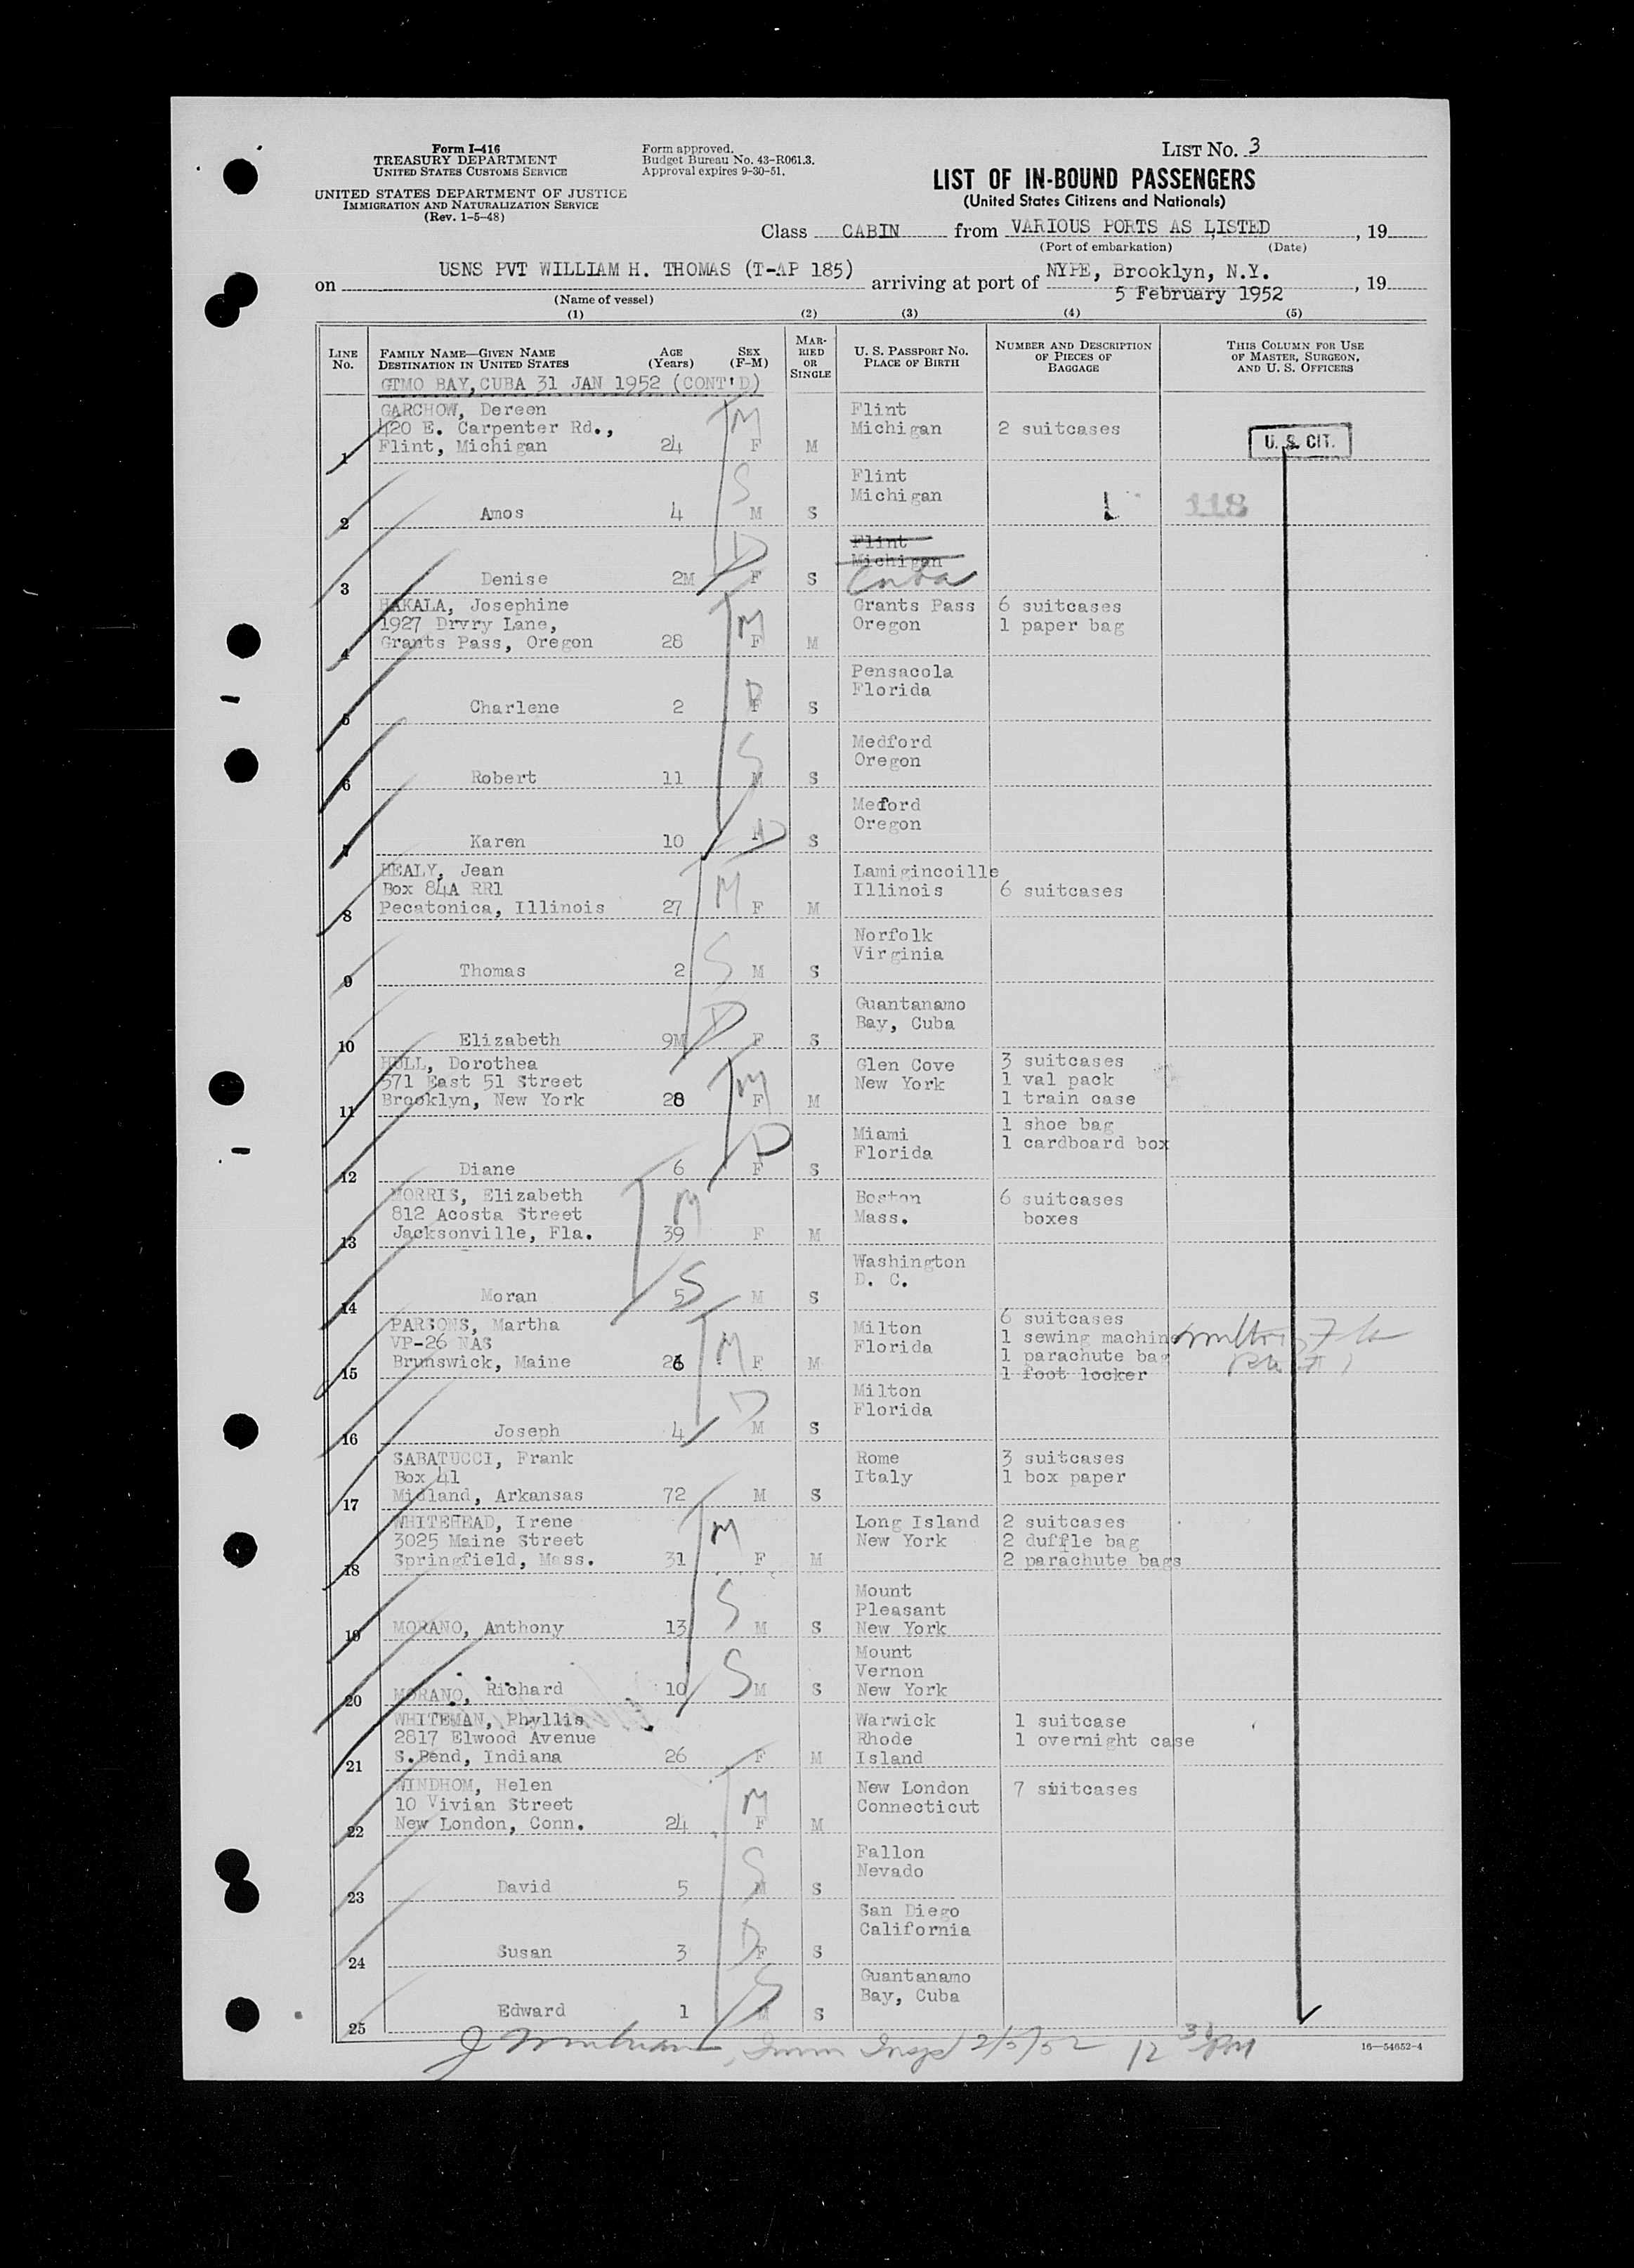 Form I-416
TREASURY DEPARTMENT
UNITED STATES CUSTOMS SERVICE
UNITED STATES DEPARTMENT OF JUSTICE
IMMIGRATION AND NATURALIZATION SERVICE
(Rev. 1-5-48)
Form approved.
Budget Bureau No. 43-R061.3.
Approval expires 9-30-51.
LIST No. 3
LIST OF IN-BOUND PASSENGERS
(United States Citizens and Nationals)
Class CABIN from VARIOUS PORTS AS LISTED, 19
(Port of embarkation) (Date)
on USNS PVT WILLIAM H. THOMAS (T-AP 185) arriving at port of NYPE, Brooklyn, N.Y.
5 February 1952, 19
(Name of vessel)
(1) (2) (3) (4) (5)
LINE No.
FAMILY NAME—GIVEN NAME
DESTINATION IN UNITED STATES
AGE (Years)
SEX (F-M)
MARRIED OR SINGLE
U. S. PASSPORT No.
PLACE OF BIRTH
NUMBER AND DESCRIPTION OF PIECES OF BAGGAGE
THIS COLUMN FOR USE OF MASTER, SURGEON, AND U. S. OFFICERS
GTMO BAY, CUBA 31 JAN 1952 (CONT'D)
GARCHOW, Dereen Flint
420 E. Carpenter Rd., Michigan 2 suitcases
1 Flint, Michigan 24 M F M U. S. CIT.
Flint
Michigan
2 Amos 4 S M S 118
Flint
Michigan
3 Denise 2M D F S Cuba
HAKALA, Josephine Grants Pass 6 suitcases
1927 Drvry Lane, Oregon 1 paper bag
4 Grants Pass, Oregon 28 M F M
Pensacola
Florida
5 Charlene 2 D F S
Medford
Oregon
6 Robert 11 S M S
Medford
Oregon
7 Karen 10 D S
HEALY, Jean Lamigincoille
Box 84A RR1 Illinois 6 suitcases
8 Pecatonica, Illinois 27 M F M
Norfolk
Virginia
9 Thomas 2 S M S
Guantanamo
Bay, Cuba
10 Elizabeth 9M D F S
HULL, Dorothea Glen Cove 3 suitcases
571 East 51 Street New York 1 val pack
11 Brooklyn, New York 28 M F M 1 train case
1 shoe bag
Miami 1 cardboard box
Florida
12 Diane 6 D F S
MORRIS, Elizabeth Boston 6 suitcases
812 Acosta Street Mass. boxes
13 Jacksonville, Fla. 39 M F M
Washington
D. C.
14 Moran 5 S M S
6 suitcases
PARSONS, Martha Milton 1 sewing machine
VP-26 NAS Florida 1 parachute bag
15 Brunswick, Maine 26 M F M 1 foot locker
Milton
Florida
16 Joseph 4 D M S
SABATUCCI, Frank Rome 3 suitcases
Box 41 Italy 1 box paper
17 Midland, Arkansas 72 M S
WHITEHEAD, Irene Long Island 2 suitcases
3025 Maine Street New York 2 duffle bag
18 Springfield, Mass. 31 M F M 2 parachute bags
Mount
Pleasant
19 MORANO, Anthony 13 S M S New York
Mount
Vernon
20 MORANO, Richard 10 S M S New York
WHITEMAN, Phyllis Warwick 1 suitcase
2817 Elwood Avenue Rhode 1 overnight case
21 S.Bend, Indiana 26 F M Island
WINDHOM, Helen New London 7 suitcases
10 Vivian Street Connecticut
22 New London, Conn. 24 M F M
Fallon
Nevado
23 David 5 S M S
San Diego
California
24 Susan 3 D F S
Guantanamo
Bay, Cuba
25 Edward 1 S M S
2/5/52 12 30 PM
16—54652-4